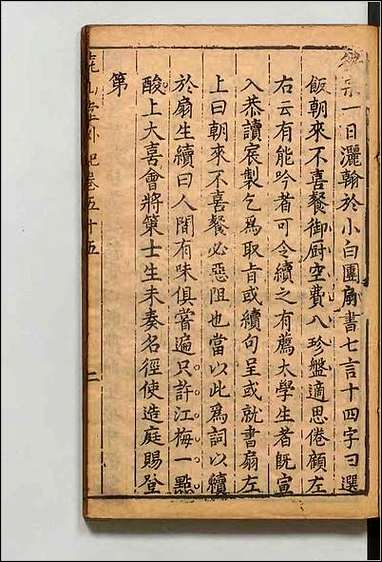 一日灑翰於小白團扇書七言十四字曰選
飯朝來不喜餐御厨空費八珍盤適思倦顧左
右云有能吟者可令續之有薦太學生者既宣
入恭讀宸製乞爲取旨或續句呈或就書扇左
上曰朝來不喜餐必惡阻也當以此爲詞以續
於扇生續曰人間有味俱嘗遍只許江梅一點
酸上大喜會將策士生未奏名徑使造庭賜登
第
卷五十五
二